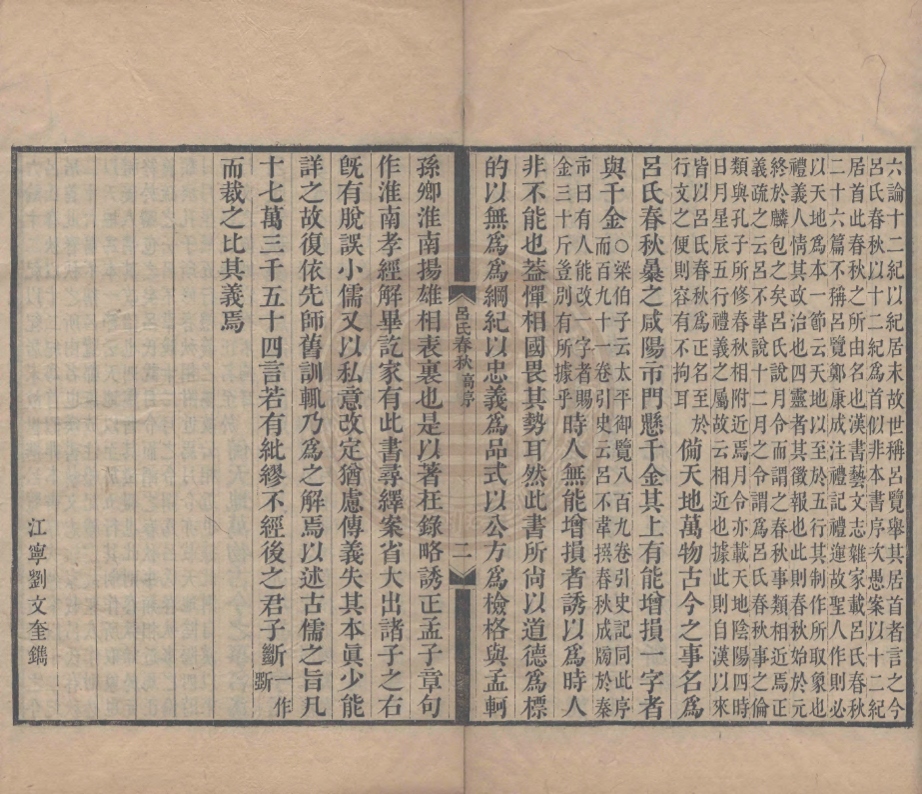 六論十二紀以紀居末故世稱呂覽舉其居首者言之今
呂氏春秋以十二紀爲首似非本書序次愚案以十二紀
居首此春秋之所由名也漢書藝文志雜家載呂氏春秋
二十六篇不稱呂覽鄭康成注禮記禮運故聖人作則必
以天地爲本一節云天地以至於五行其制作所取象也
禮義人情其政治也四靈者其徵報也此則春秋始於元
終於麟包之矣呂氏說月令而謂之春秋事類相近焉正
義疏之云呂不韋說十二月之令謂爲呂氏春秋事之倫
類與孔子所修春秋相附近焉月令亦載天地陰陽四時
日月星辰五行禮義之屬故云相近也據此則自漢以來
皆以呂氏春秋爲正名至於
行文之便則容有不拘耳
備天地萬物古今之事名爲
呂氏春秋暴之咸陽市門懸千金其上有能增損一字者
與千金
○梁伯子云太平御覽八百九卷引史記同此序
而百九十一卷引史云呂不韋撰春秋成牓於秦
市曰有人能改一字者賜
金三十斤豈別有所據乎
時人無能增損者誘以爲時人
非不能也蓋憚相國畏其勢耳然此書所尚以道德爲標
的以無爲爲綱紀以忠義爲品式以公方爲檢格與孟軻
呂氏春秋 高序 二
孫卿淮南揚雄相表裏也是以著在錄略誘正孟子章句
作淮南孝經解畢訖家有此書尋繹案省大出諸子之右
旣有脫誤小儒又以私意改定猶慮傳義失其本眞少能
詳之故復依先師舊訓輒乃爲之解焉以述古儒之旨凡
十七萬三千五十四言若有紕繆不經後之君子斷一作㫁
而裁之比其義焉
江寧劉文奎鐫